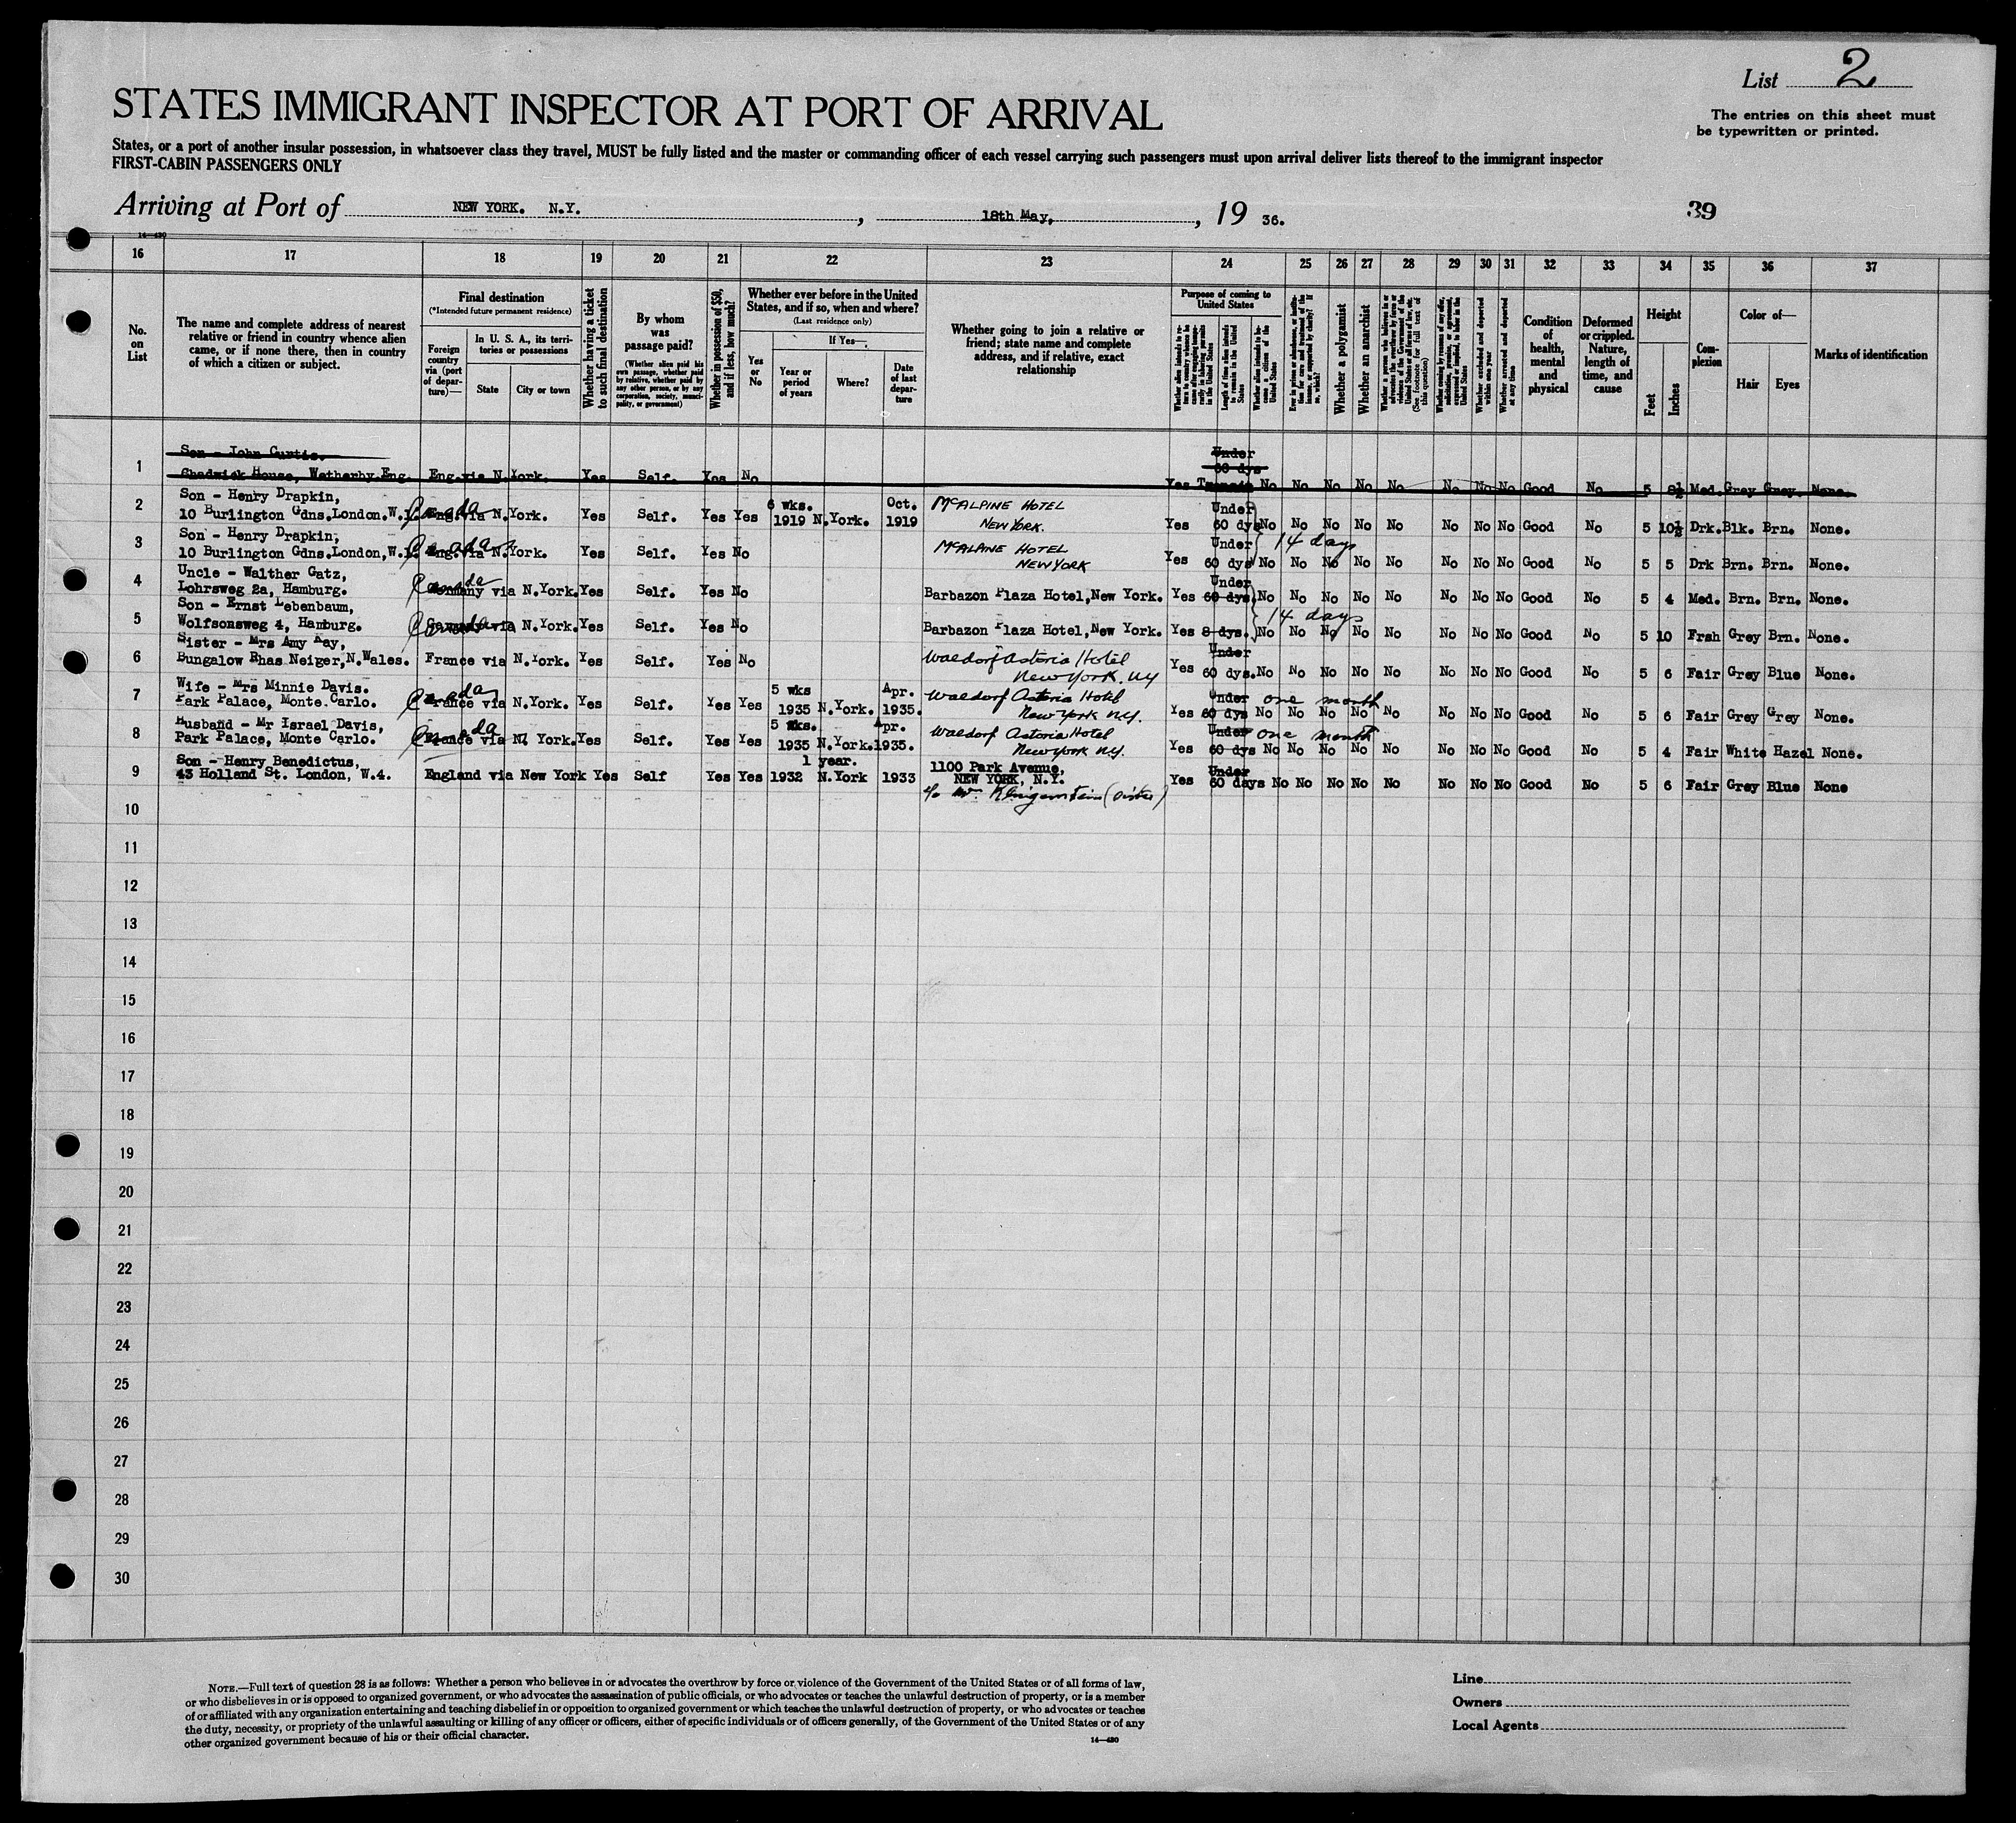 List 2
The entries on this sheet must
be typewritten or printed.
STATES IMMIGRANT INSPECTOR AT PORT OF ARRIVAL
States, or a port of another insular possession, in whatsoever class they travel, MUST be fully listed and the master or commanding officer of each vessel carrying such passengers must upon arrival deliver lists thereof to the immigrant inspector
FIRST-CABIN PASSENGERS ONLY
Arriving at Port of NEW YORK. N.Y. , 18th May, , 19 36.
39
14—430
16 17 18 19 20 21 22 23 24 25 26 27 28 29 30 31 32 33 34 35 36 37
No. on List
The name and complete address of nearest relative or friend in country whence alien came, or if none there, then in country of which a citizen or subject.
Final destination
(*Intended future permanent residence)
Foreign country via (port of departure)—
In U. S. A., its territories or possessions
State
City or town
Whether having a ticket to such final destination
By whom was passage paid?
(Whether alien paid his own passage, whether paid by relative, whether paid by any other person, or by any corporation, society, municipality, or government)
Whether in possession of $50, and if less, how much?
Whether ever before in the United States, and if so, when and where?
(Last residence only)
Yes or No
If Yes—
Year or period of years
Where?
Date of last departure
Whether going to join a relative or friend; state name and complete address, and if relative, exact relationship
Purpose of coming to United States
Whether alien intends to return to country whence he came after engaging temporarily in laboring pursuits in the United States
Length of time alien intends to remain in the United States
Whether alien intends to become a citizen of the United States
Ever in prison or almshouse, or institution for care and treatment of the insane, or supported by charity? If so, which?
Whether a polygamist
Whether an anarchist
Whether a person who believes in or advocates the overthrow by force or violence of the Government of the United States or all forms of law, etc. (See footnote for full text of this question)
Whether coming by reason of any offer, solicitation, promise, or agreement, expressed or implied, to labor in the United States
Whether excluded and deported within one year
Whether arrested and deported at any time
Condition of health, mental and physical
Deformed or crippled. Nature, length of time, and cause
Height
Feet
Inches
Complexion
Color of—
Hair
Eyes
Marks of identification
Son - John Curtis. Under
60 dys
1 Chadwick House, Wetherby.Eng. Eng.via N.York. Yes Self. Yes No Yes No No No No No No No No Good No 5 Med. Grey Grey. None.
Son - Henry Drapkin, 6 wks. Oct. McALPINE HOTEL Under
2 10 Burlington Gdns.London.W.1. Canada Eng.via N.York. Yes Self. Yes Yes 1919 N.York. 1919 NEW YORK. Yes 60 dys No No No No No No No No Good No 5 10½ Drk. Blk. Brn. None.
Son - Henry Drapkin, McALPINE HOTEL Under 14 days
3 10 Burlington Gdns.London,W.1. Canada Eng.via N.York. Yes Self. Yes No NEW YORK Yes 60 dys No No No No No No No No Good No 5 5 Drk Brn. Brn. None.
Uncle - Walther Gatz, Under
4 Lohrsweg 2a, Hamburg. Canada Germany via N.York. Yes Self. Yes No Barbazon Plaza Hotel, New York. Yes 60 dys. No No No No No No No No Good No 5 4 Med. Brn. Brn. None.
Son - Ernst Lebenbaum, 14 days
5 Wolfsonsweg 4, Hamburg. Canada via N.York. Yes Self. Yes No Barbazon Plaza Hotel, New York. Yes 8 dys. No No No No No No No No Good No 5 10 Frsh Grey Brn. None.
Sister - Mrs Amy Ray, Waldorf Astoria Hotel Under
6 Bungalow Rhas Neiger, N.Wales. France via N.York. Yes Self. Yes No New York. NY Yes 60 dys. No No No No No No No No Good No 5 6 Fair Grey Blue None.
Wife - Mrs Minnie Davis. 5 wks Apr. Waldorf Astoria Hotel Under one month
7 Park Palace, Monte Carlo. Canada France via N.York. Yes Self. Yes Yes 1935 N.York. 1935. New York N.Y. Yes 60 dys No No No No No No No No Good No 5 6 Fair Grey Grey None.
Husband - Mr Israel Davis, 5 wks. Apr. Waldorf Astoria Hotel Under one month
8 Park Palace, Monte Carlo. Canada France via N. York. Yes Self. Yes Yes 1935 N.York. 1935. New York N.Y. Yes 60 dys No No No No No No No No Good No 5 4 Fair White Hazel None.
Son - Henry Benedictus, 1 year. 1100 Park Avenue, Under
9 43 Holland St. London, W.4. England via New York Yes Self Yes Yes 1932 N.York 1933 NEW YORK, N.Y. Yes 60 days No No No No No No No No Good No 5 6 Fair Grey Blue None
c/o Klingenstein (sister)
10
11
12
13
14
15
16
17
18
19
20
21
22
23
24
25
26
27
28
29
30
NOTE.—Full text of question 28 is as follows: Whether a person who believes in or advocates the overthrow by force or violence of the Government of the United States or of all forms of law,
or who disbelieves in or is opposed to organized government, or who advocates the assassination of public officials, or who advocates or teaches the unlawful destruction of property, or is a member
of or affiliated with any organization entertaining and teaching disbelief in or opposition to organized government or which teaches the unlawful destruction of property, or who advocates or teaches
the duty, necessity, or propriety of the unlawful assaulting or killing of any officer or officers, either of specific individuals or of officers generally, of the Government of the United States or of any
other organized government because of his or their official character.
14—430
Line
Owners
Local Agents